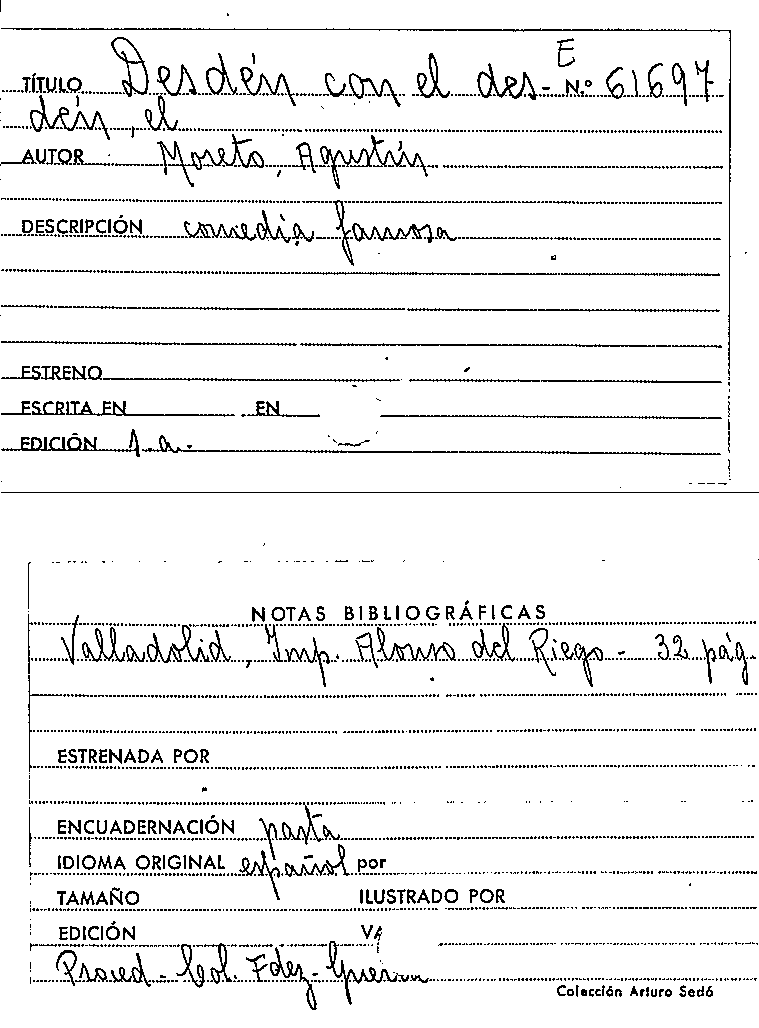 E
TÍTULO Desdén con el des- N.º 61697
dén, el
AUTOR Moreto, Agustín
DESCRIPCIÓN comedia famosa
ESTRENO
ESCRITA EN EN
EDICIÓN s.a.
NOTAS BIBLIOGRÁFICAS
Valladolid, Imp. Alonso del Riego - 32 pág.
ESTRENADA POR
ENCUADERNACIÓN pasta
IDIOMA ORIGINAL español por
TAMAÑO ILUSTRADO POR
EDICIÓN
Proced - Col. Fdez- Guerra
Colección Arturo Sedó